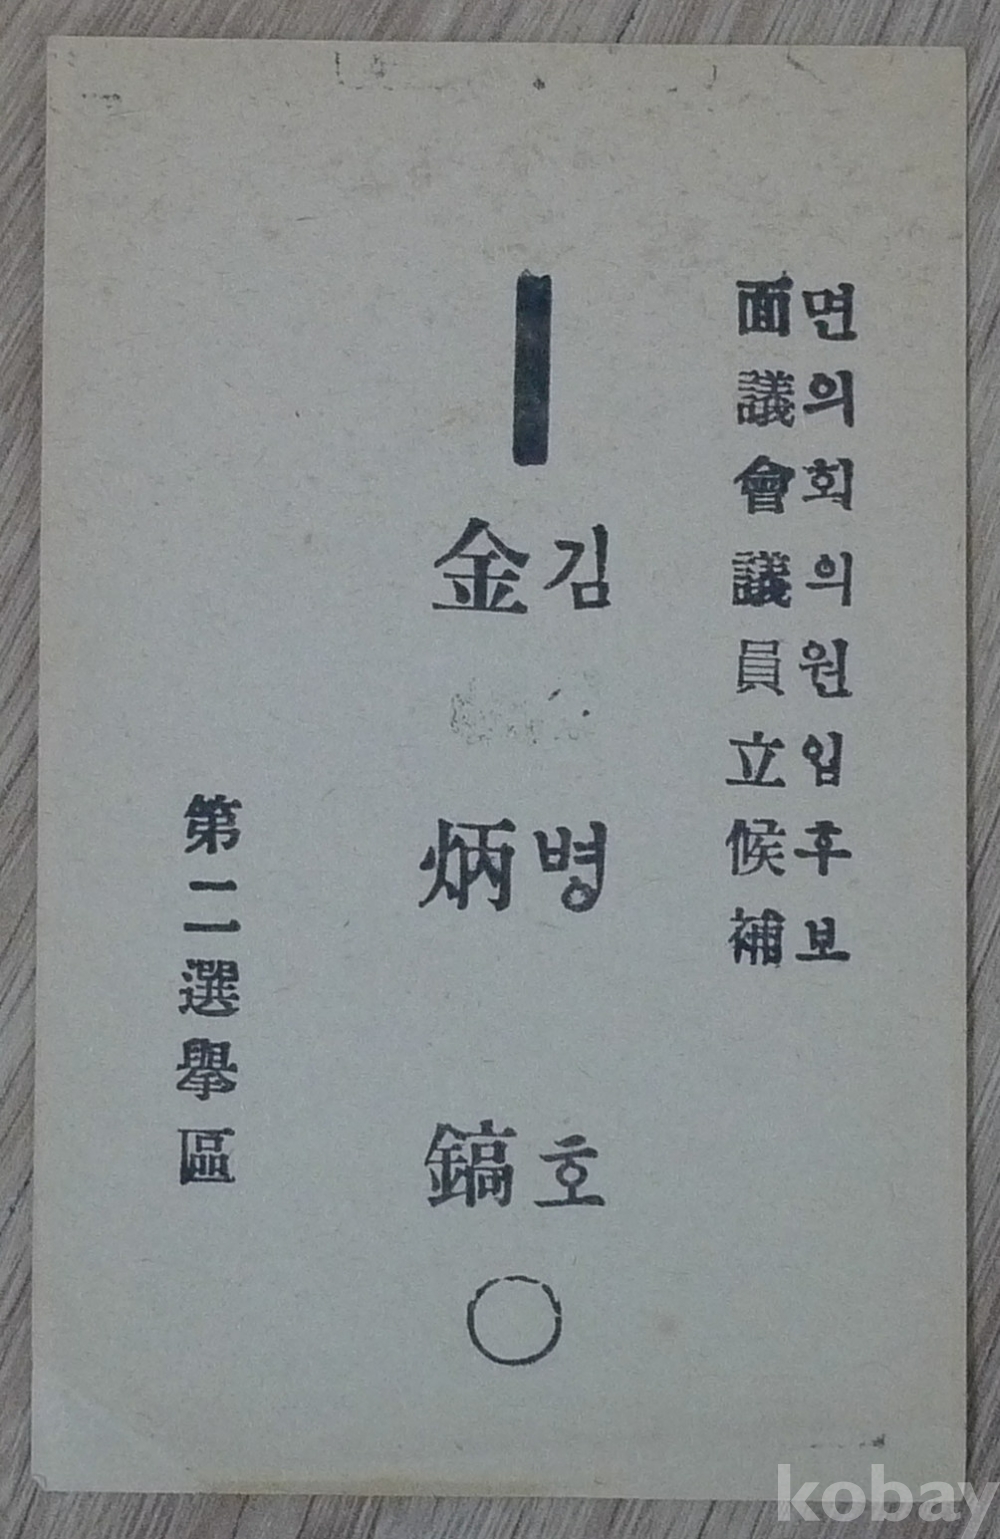 면의회의원입후보
面議會議員立候補
김병호
金炳鎬
第二選擧區
kobay